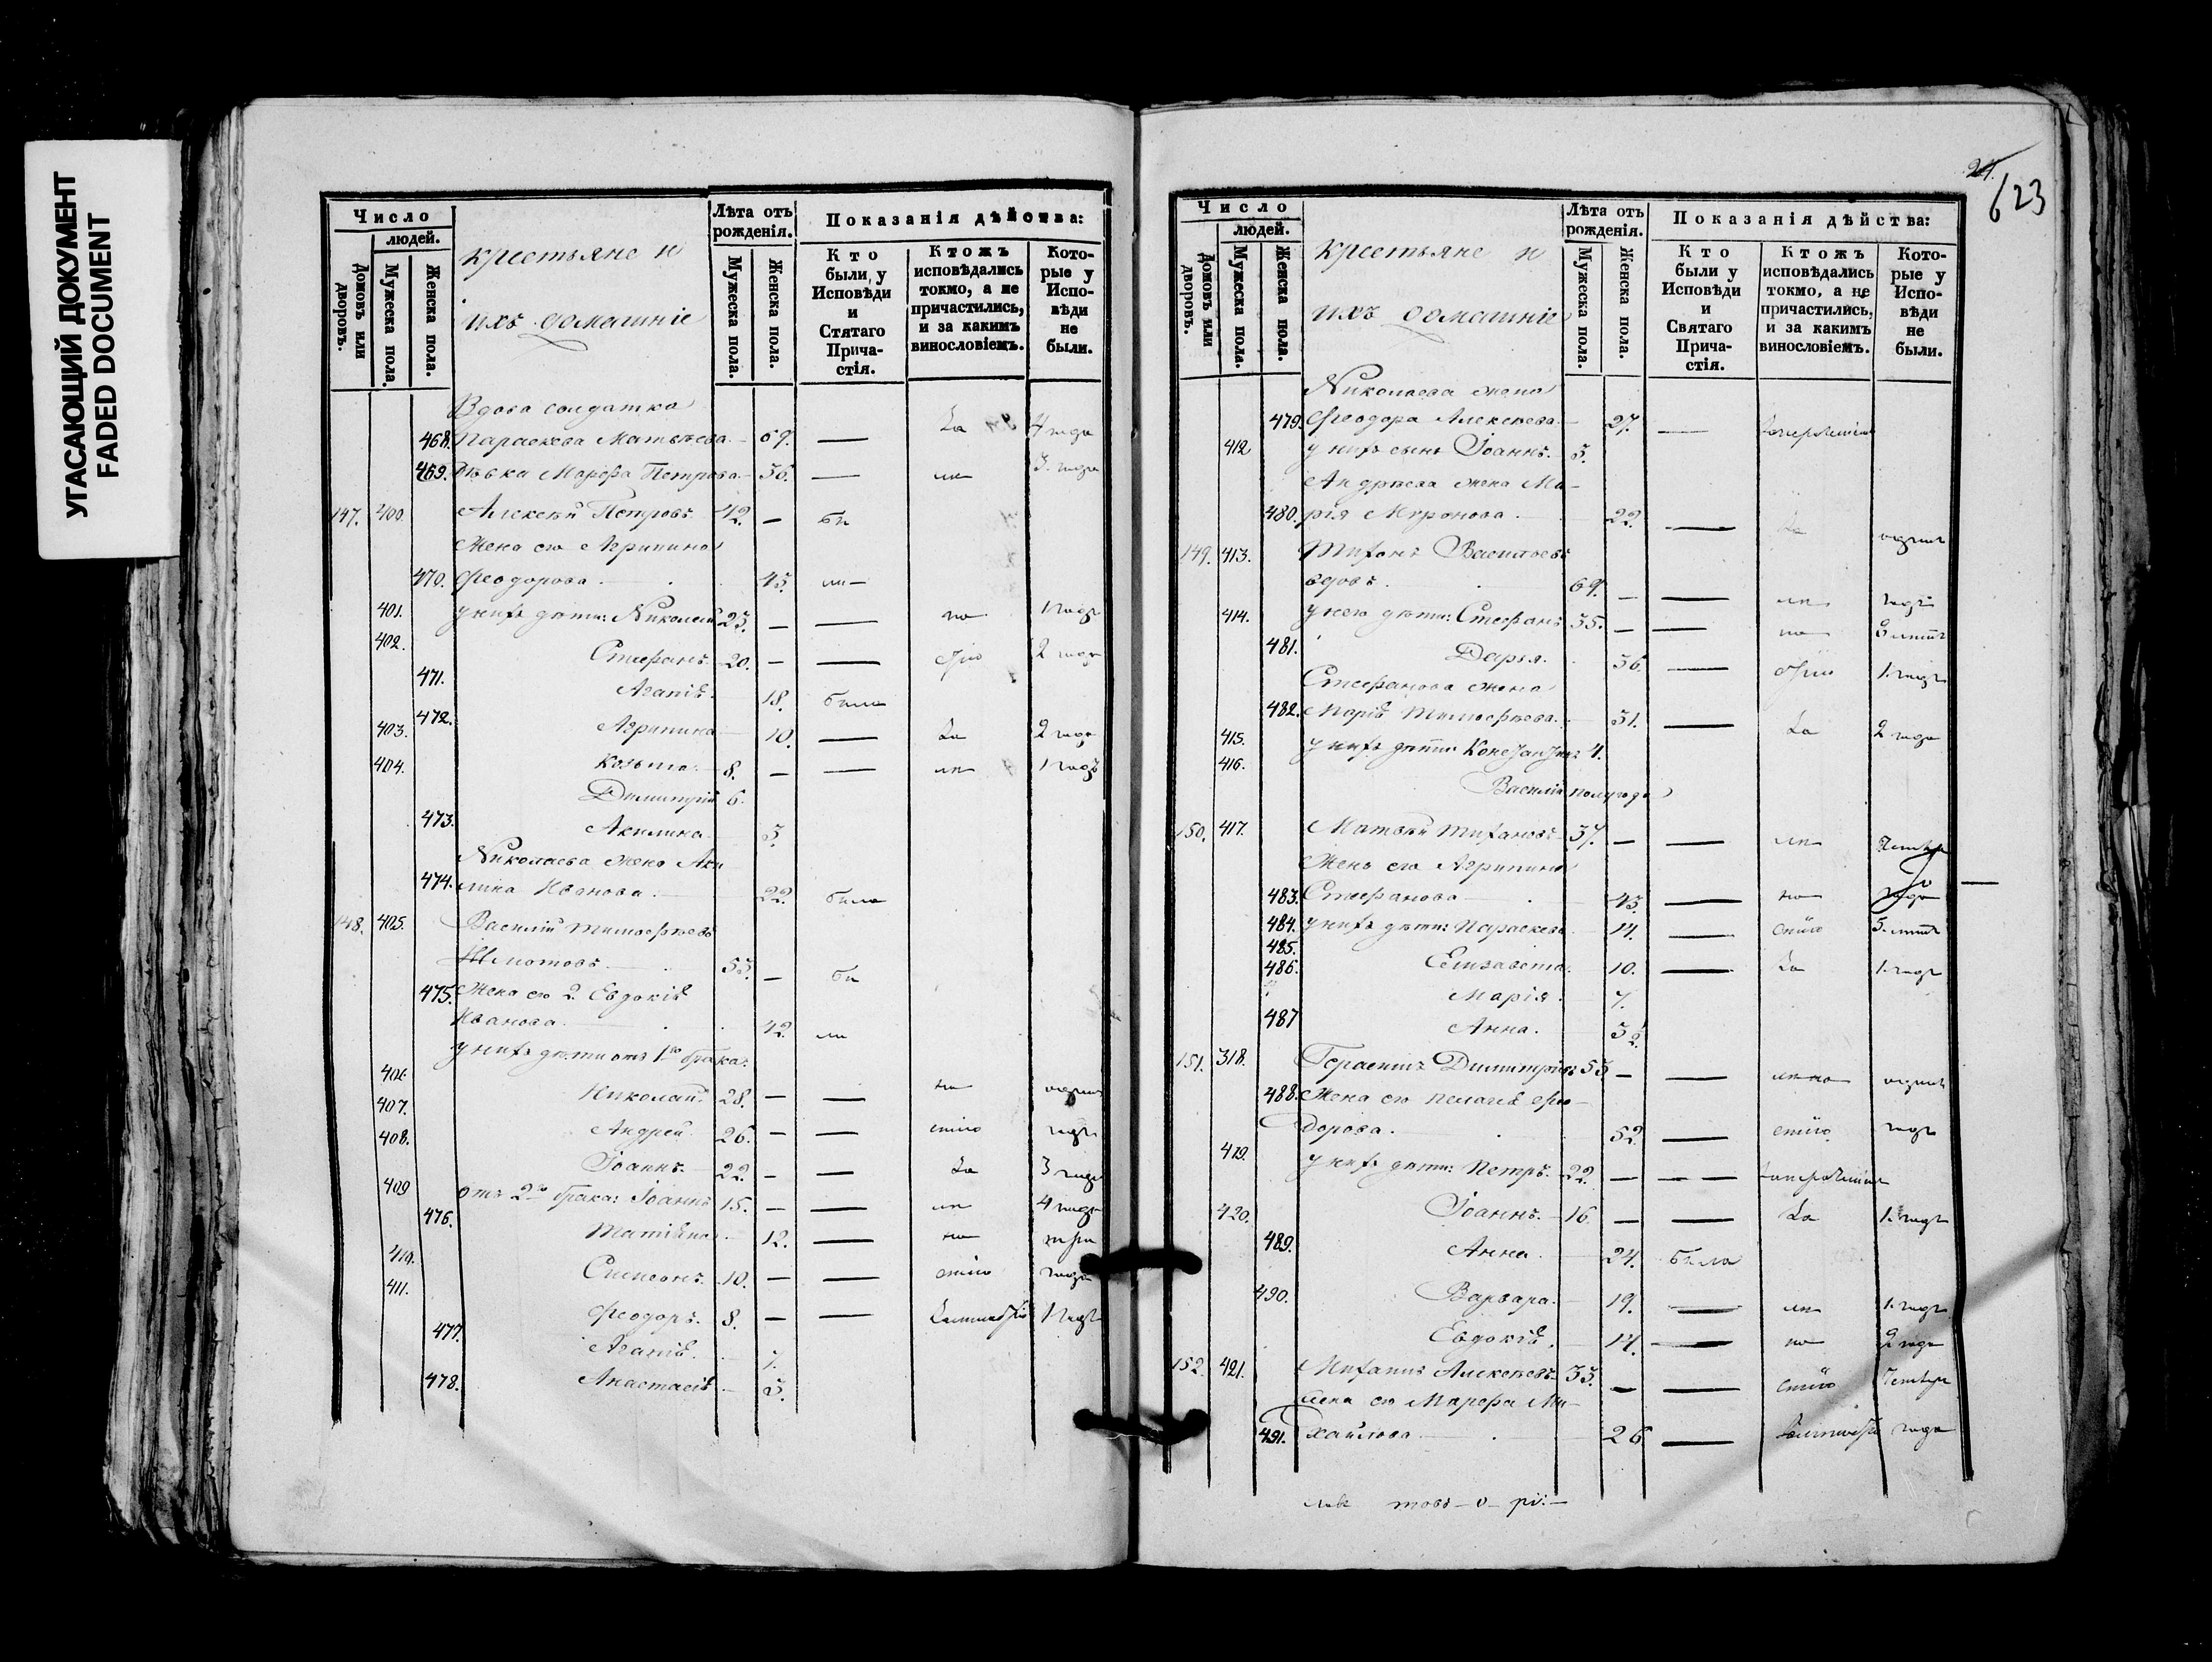 УГАСАЮЩИЙ ДОКУМЕНТ
FADED DOCUMENT
Число
людей.
Домовъ или дворовъ.
Мужеска пола.
Женска пола.
крестьяне и
ихъ домашніе
Лѣта отъ рожденія.
Мужеска пола.
Женска пола.
Показанія дѣйства:
Кто были у Исповѣди и Стятаго Прича-стія.
Ктожъ исповѣдались токмо, а не причастились, и за какимъ винословіемъ.
Кото-рые у Испо-вѣди не были.
Вдова солдатка
468. Параскева Матвѣева. – 69. — За 4 года
469. Дѣвка Марѳа Петрова – 36. — ле 3. года
147. 400. Алексѣй Петровъ 42. – бы
Жена его Агрипина
470. Ѳеодорова. 45. ли –
401. у нихъ дѣти: Николай 25. – — но 1 годъ
402. Стефанъ. 20. – — стію 2 года
471. Агапіѣ. 18. была
472. Агрипина 10. — За 2 года
403. Козьма. 8. – — ле 1 годъ
404. Димитрій 6.
473. Акилина 3.
Николаева жена Аки
474. лина Иванова. 22. была
148. 405. Василій Тимоѳѣевъ
55. – бы
475. Жена его 2. Евдокіѣ
Иванова. 42. ли
у нихъ дѣти отъ 1го брака:
406. Николай. 28. – — но одинъ
407. Андрей. 26. – — стію годъ
408. Іоаннъ. 22. – — За 3 года
409 отъ 2го брака: Іоаннъ 15. – — ле 4 года
476. Татіѣна 12. — но три
410. Симеонъ. 10. – — стію года
411. Ѳеодоръ. 8. – — 1 годъ
477. Агапіѣ. 7.
478. Анастасіѣ 5.
24.
623
Число
людей.
Домовъ или дворовъ.
Мужеска пола.
Женска пола.
крестьяне и
ихъ домашніе
Лѣта отъ рожденія.
Мужеска пола.
Женска пола.
Показанія дѣйства:
Кто были у Исповѣди и Святаго Прича-стія.
Ктожъ исповѣдались токмо, а не причастились, и за какимъ винословіемъ.
Кото-рые у Испо-вѣди не были.
Николаева жена
479. Ѳеодора Алексѣева. 27. —
412 у нихъ сынъ Іоаннъ. 3.
Андрѣева жена Ма–
480. рія Миронова. 22. — За одинъ
149. 413. Тихонъ Васильевъ
вдовъ. 69. – — ле годъ
414. у него дѣти: Стефанъ 35. – — но 3 лѣтъ
481. Дарья. 36. — стію 1. годъ
Стефанова жена
482. Маріѣ Тимоѳѣева. 31. — За 2 года
415. у нихъ дѣти: Константинъ 4.
416. Василій полугода
150. 417. Матвѣй Тихановъ 37. – — ле
Жена его Агрипина
483. Стефанова 43. — но года
484. у нихъ дѣти: Параскева 14. — стію 5. лѣтъ
485. Елизавета. 10. — За 1. годъ
486. Марія. 7.
487 Анна. 3
151. 318. Герасимъ Димитріевъ 55 – — одинъ
488. Жена его Пелагіѣ Ѳео–
дорова. 52. — стію годъ
419. у нихъ дѣти: Петръ. 22. – —
420. Іоаннъ. 16. – — За 1. годъ
489. Анна. 24. была
490. Варвара. 19. — ле 1. годъ
Евдокіѣ. 14. — но 2 года
152. 421. Михаилъ Алексѣевъ 35. – — стію четыре
Жена его Марѳа Ми–
491. хайлова 26 — года